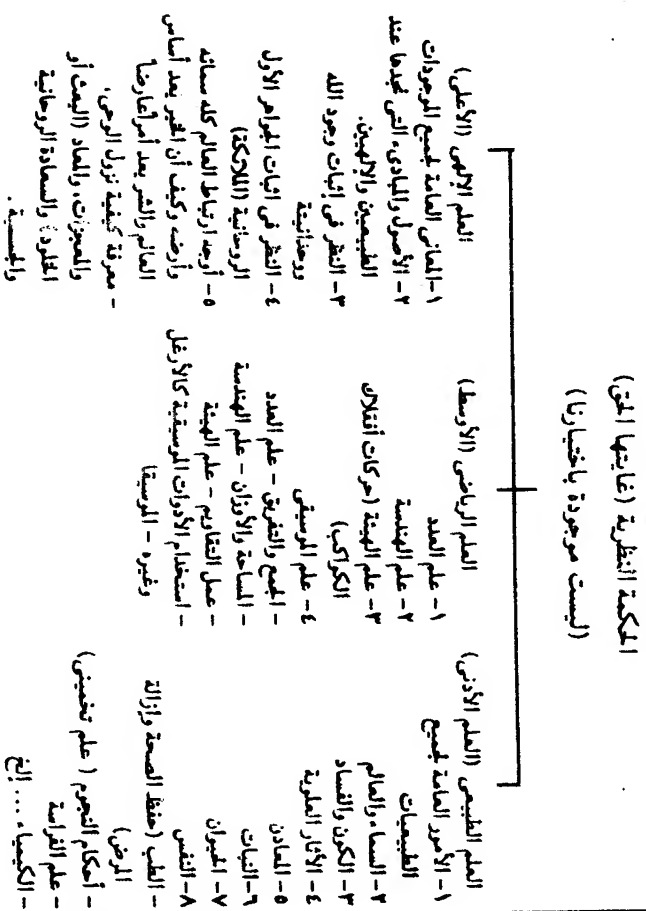 الحكمة النظرية (غايتها الحق)
(ليست موجودة باختيارنا)
العلم الطبيعى (العلم الأدنى)
١- الأمور العامة لجميع
الطبيعيات
٢- السماء والعالم
٣- الكون والفساد
٤- الأثار العلوية
٥- المعادن
٦- النبات
٧- الحيوان
٨- النفس
- الطب (حفظ الصحة وإزالة
المرض)
- أحكام النجوم (علم تخمينى)
- علم الفراسة
- الكيمياء .... إلخ
العلم الرياضى (الأوسط)
١- علم العدد
٢- علم الهندسة
٣- علم الهيئة (حركات أفتلاك
الكواكب)
٤- علم الموسيقى
- الجمع والتفريق - علم العدد
- المساحة والأوزان - علم الهندسة
- عمل التقاويم - علم الهيئة
- استخدام الأدوات الموسيقية كالأرغل
وغيره - الموسيقا
العلم الإلهى (الأعلى)
١-المعانى العامة لجميع الموجودات
٢- الأصول والمبادىء التى نجدها عند
الطبيعيين والإلهيين.
٣- النظر فى إثبات وجود الله
ووحدانيتة
٤- النظر فى اثبات الجواهر الأول
الروحانية (الملائكة)
٥- أوجه ارتباط العالم كله سمائه
وأرضه وكيف أن الخير يعد أساس
العالم والشر يعد أمراً عارضاً
- معرفة كيفية نزول الوحى،
والمعجزات، والمعاد (البعث أو
الخلود) والسعادة الروحانية
والجسية .